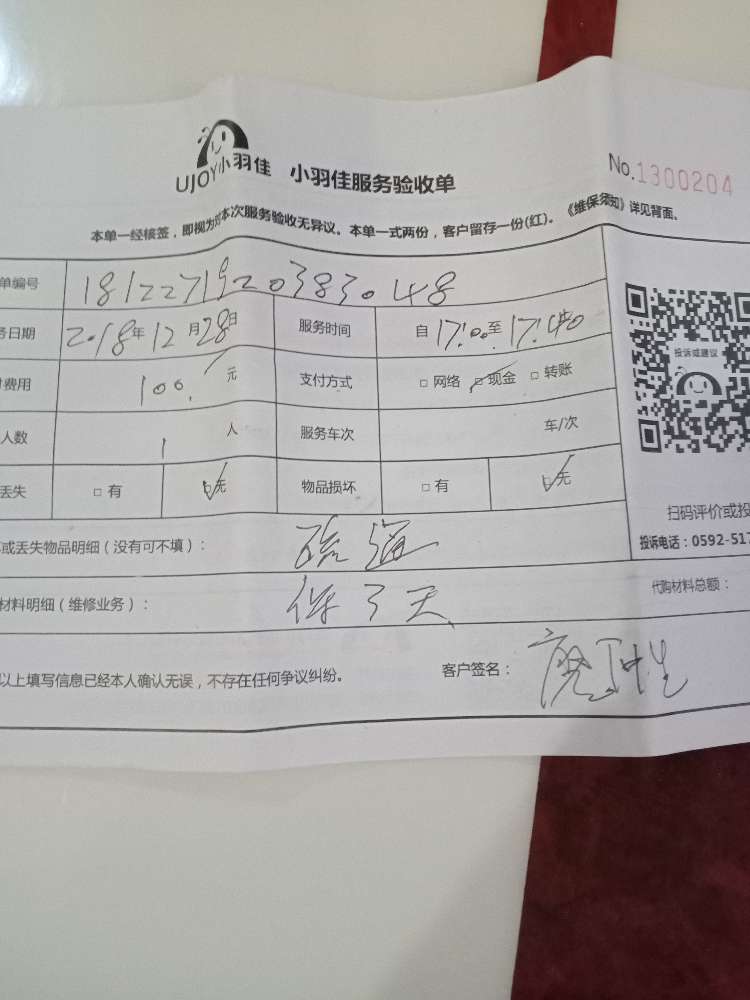 UJOY小羽佳 小羽佳服务验收单 No.1300204
本单一经核签，即视为对本次服务验收无异议。本单一式两份，客户留存一份(红)。《维保须知》详见背面。
单编号 1812271920383048
务日期 2018年12月28日 服务时间 自17:00至17:40
费用 100.元 支付方式 □网络 □现金 □转账
人数 1人 服务车次 车/次
丢失 □有 □无 物品损坏 □有 □无
投诉或建议
扫码评价或投
投诉电话：0592-517
或丢失物品明细（没有可不填）： 疏通
材料明细（维修业务）： 保了天 代购材料总额：
以上填写信息已经本人确认无误，不存在任何争议纠纷。 客户签名：